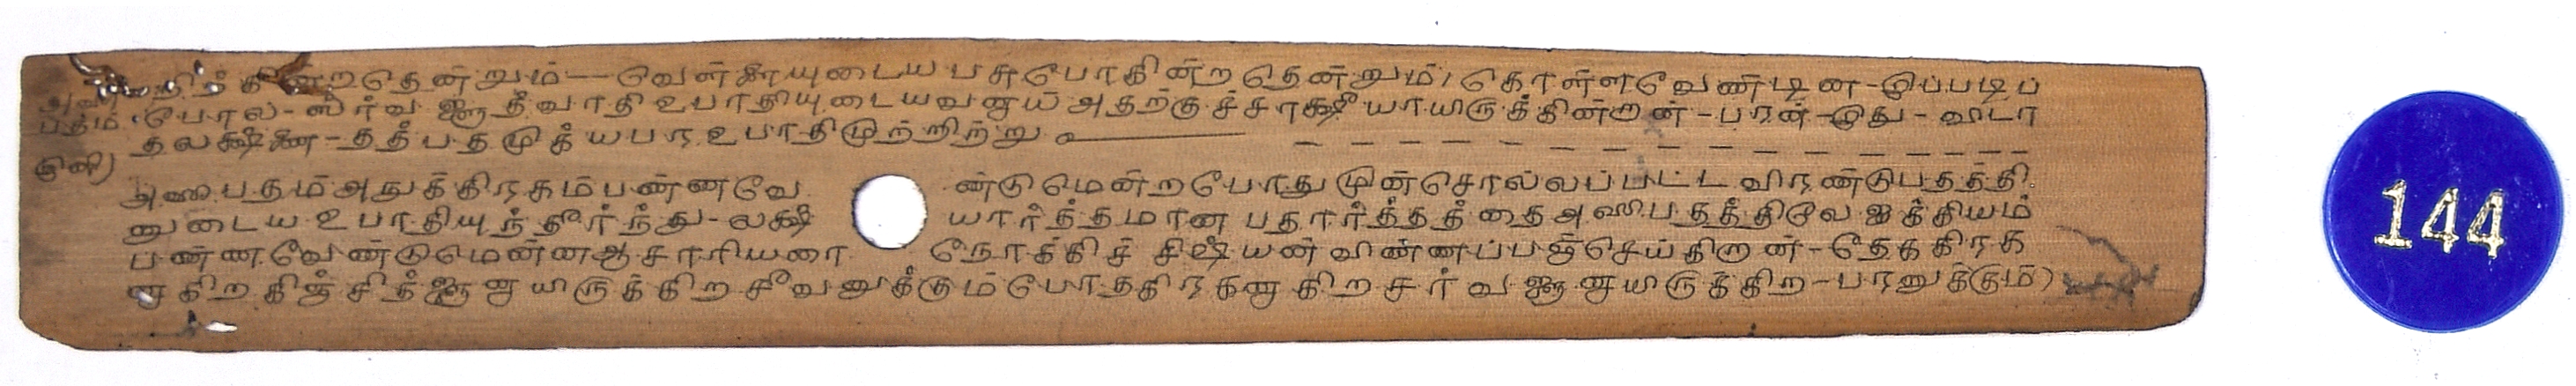 கின்றதென்றும் — வெள்ளையுடைய பசுபோகின்ற தென்றும், கொள்ளவேண்டின - இப்படிப்
போல - ஸர்வஜ்ஞத்வாதி உபாதியுடையவனாய் அதற்குச்சாக்ஷியாயிருக்கின்றான் - பரன் - இது - விடா
தலக்ஷணை - தத்பதமுக்யபர உபாதிமுற்றிற்று
அஸிபதம் அநுக்கிரகம்பண்ணவே ண்டுமென்றபோது முன்சொல்லப்பட்ட விரண்டுபதத்தி
னுடைய உபாதியுந்தீர்ந்து - லக்ஷி யார்த்தமான பதார்த்தத்தை அஸிபதத்திலே ஐக்கியம்
பண்ணவேண்டுமென்ன ஆசாரியரை நோக்கிச் சிஷ்யன் விண்ணப்பஞ்செய்கிறான் - தேககிரக
னாகிற கிஞ்சித்ஜ்ஞனாயிருக்கிற சீவனுக்கும் போதகிரகனாகிற சர்வஜ்ஞனாயிருக்கிற - பரனுக்கும்)
144